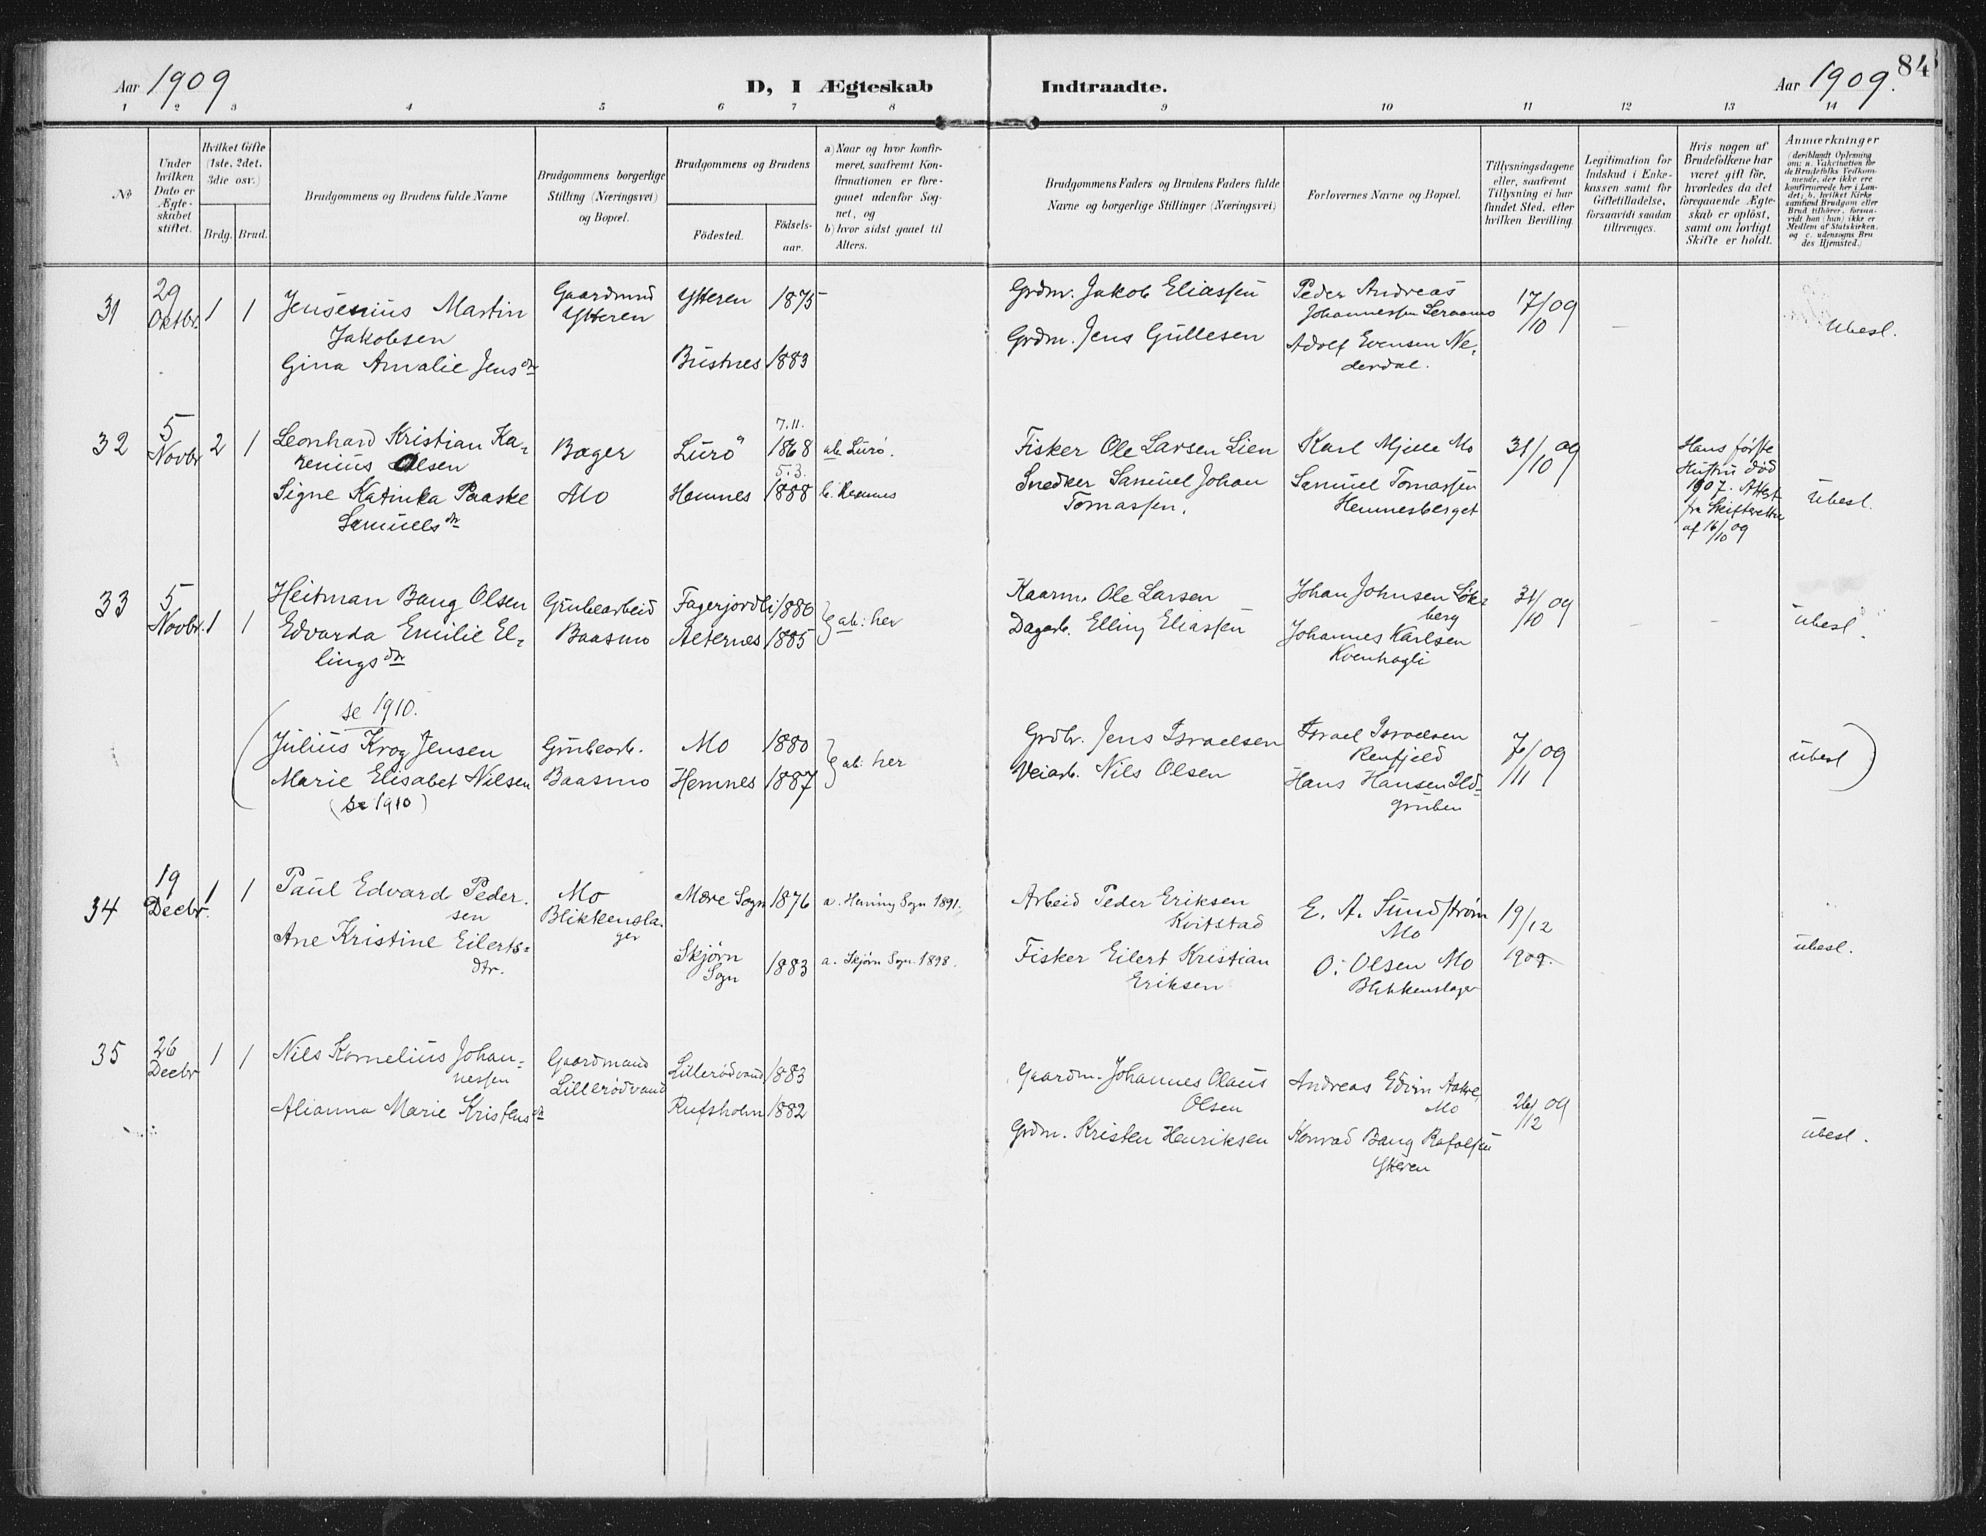 Aar 1909
D, I Ægteskab
Indtraadte.
Aar 1909.
84
1 2 3 4 5 6 7 8 9 10 11 12 13 14
No
Under
hvilken
Dato er
Ægte-
skabet
stiftet.
Hvilket Gifte
(1ste, 2det,
3die osv.)
Brdg. Brud.
Brudgommens og Brudens fulde Navne
Brudgommens borgerlige
Stilling (Næringsvei)
og Bopæl.
Brudgommens og Brudens
Födested.
Födsels-
aar.
a) Naar og hvor konfir-
meret, saafremt Kon-
firmationen er fore-
gaaet udenfor Sog-
net, og
b) hvor sidst gaaet til
Alters.
Brudgommens Faders og Brudens Faders fulde
Navne og borgerlige Stillinger (Næringsvei)
Forlovernes Navne og Bopæl.
Tillysningsdagene
eller, saafremt
Tillysning ei har
fundet Sted, efter
hvilken Bevilling.
Legitimation for
Indskud i Enke-
kassen samt for
Giftetilladelse,
forsaavidt saadan
tiltrænges.
Hvis nogen af
Brudefolkene har
været gift för,
hvorledes da det
foregaaende Ægte-
skab er oplöst,
samt om lovligt
Skifte er holdt.
Anmærkninger
(deriblandt Oplysning
om: a. Vakcination for
de Brudefolks Vedkom-
mende, der ikke ere
konfirmerede her i Lan-
det; b. hvilket Kirke-
samfund Brudgom eller
Brud tilhörer, forsaa-
vidt han (hun) ikke er
Medlem af Statskirken,
og c. udensogns Bru-
des Hjemsted.)
31
29
Oktbr.
1 1
Jensenius Martin
Jakobsen
Gina Amalie Jensdtr
Gaardmnd
Ytteren
Ytteren 1875
Bustnes 1883
Grdm. Jakob Eliassen
Grdm. Jens Gullesen
Peder Andreas
Johannessen
Adolf Evensen Ne-
derdal.
17/10 09
Ubesl.
32
5
Novbr
2 1
Leonhard Kristian Ka-
renius Olsen
Signe Katinka Paaske
Samuelsdtr
Bager
Mo
Lurö
7.11.
1868
Hemnes
5.3.
1888
ab Lurö.
b. Hemnes
Fisker Ole Larsen Lien
Snedker Samuel Johan
Tomassen.
Karl Mjelle Mo
Samuel Tomassen
Hemnesberget
31/10 09
Hans første
Hustru død
1907. Attest
fra Skifteretten
af 16/10 09
Ubesl.
33
5
Novbr.
1 1
Heitman Bang Olsen
Edvarda Emilie El-
lingsdtr
Grubearbeid
Baasmo
Fagerjordli 1886
Alternes 1885
ab: her
Kaarm. Ole Larsen
Dagarb. Elling Eliassen
Johan Johnsen Løk-
berg
Johannes Karlsen
Kvenhagli
31/10 09
Ubesl.
se 1910.
(Julius Krog Jensen
Marie Elisabet Nilsen
(se 1910)
Grubearb.
Baasmo
Mo 1880
Hemnes 1887
ab: her
Grdbr. Jens Israelsen
Veiarb. Nils Olsen
Israel Israelsen
Renfjeld
Hans Hansen Ild-
gruben
7/11 09
Ubesl)
34
19
Decbr.
1 1
Paul Edvard Peder-
sen
Ane Kristine Eilerts-
dtr.
Mo
Blikkensla-
ger
Mære Sogn 1876
Skjørn
Sogn
1883
a. Hening Sogn 1891.
a. Skjørn Sogn 1898.
Arbeid Peder Eriksen
Kvitstad
Fisker Eilert Kristian
Eriksen
E. A. Sundstrøm
Mo
O. Olsen Mo
Blikkenslager
19/12
1909.
Ubesl.
35
26
Decbr
1 1
Nils Kornelius Johan-
nessen
Alianna Marie Kristensdtr
Gaardmand
Lillerödvand
Lillerödvand 1883
Rufsholm 1882
Gaardm. Johannes Olaus
Olsen
Grdm. Kristen Henriksen
Andreas Edvin Aakre,
Mo
Konrad Bang Rafalsen
Ytteren
26/12 09
Ubesl.